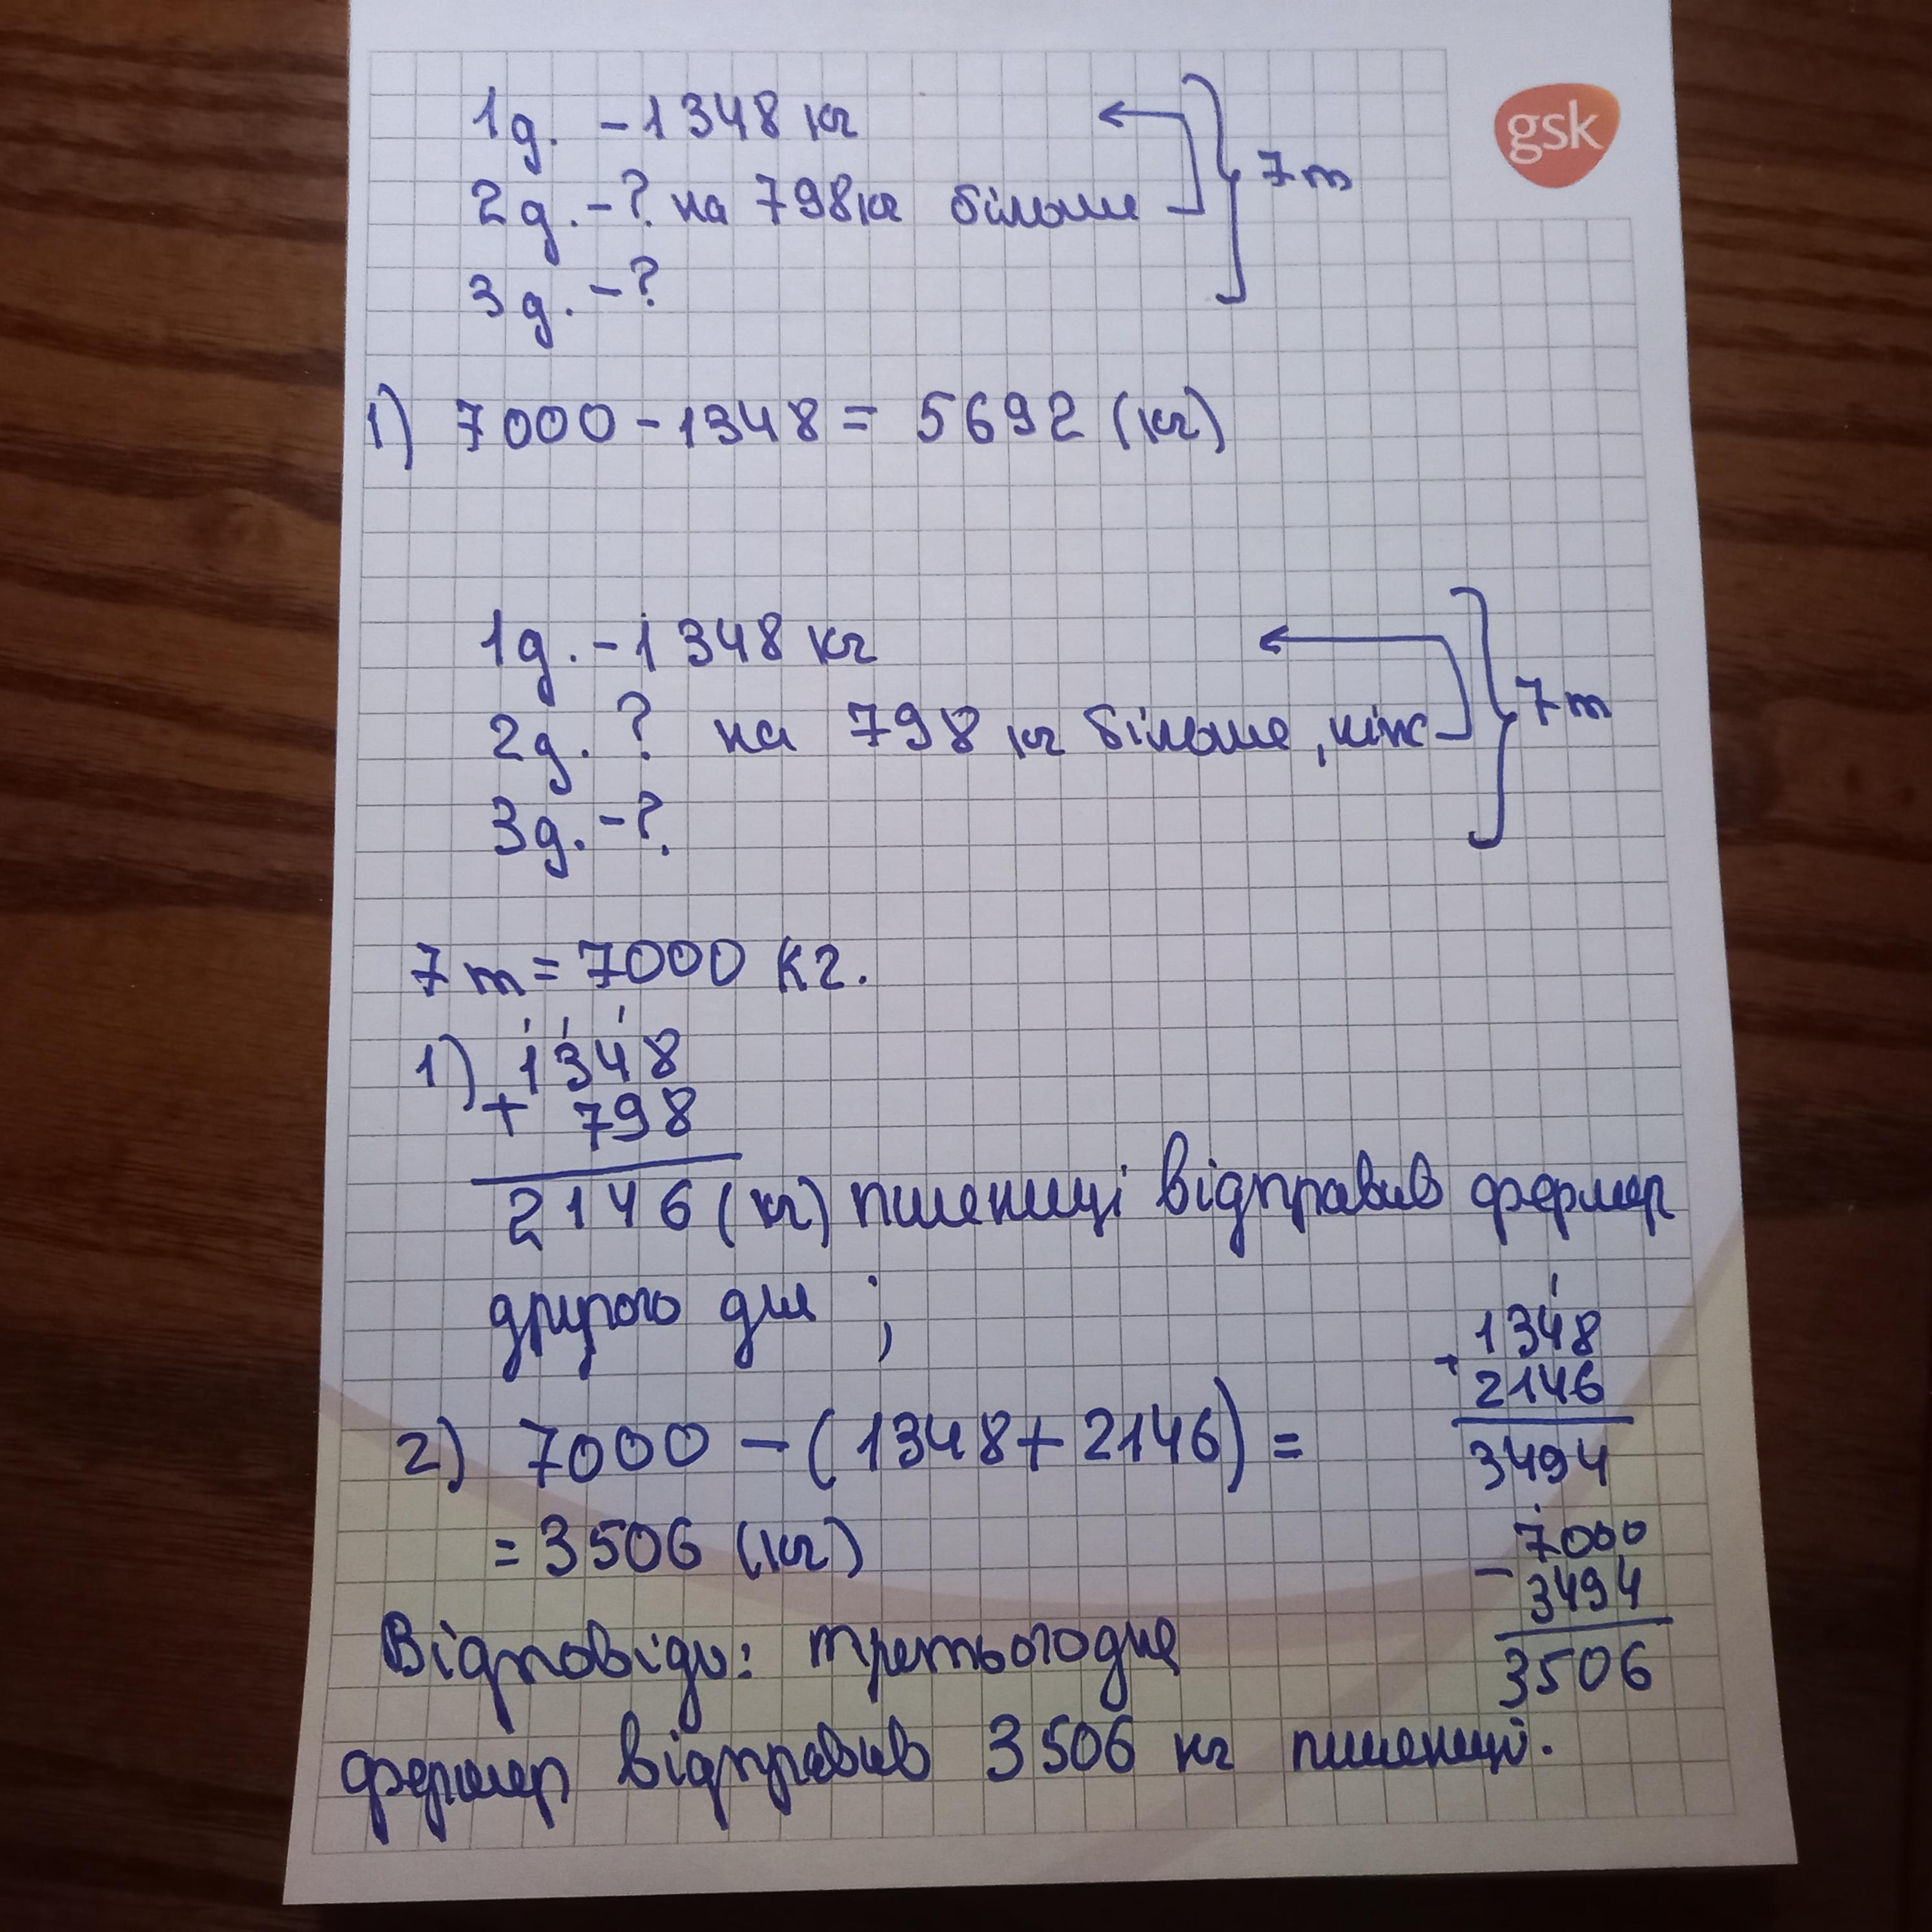 gsk
1д. - 1348 кг
2д. - ? на 798кг більше
7 т
3д. - ?
1) 7000 - 1348 = 5692 (кг)
1д. - 1348 кг
2д. ? на 798 кг більше, ніж
7 т
3д. - ?
7 т = 7000 кг.
1) 1348
+ 798
2146 (кг) пшениці відправив фермер
другого дня ;
1348
+ 2146
3494
2) 7000 - (1348 + 2146) =
= 3506 (кг)
7000
- 3494
3506
Відповідь: третього дня
фермер відправив 3506 кг пшениці.